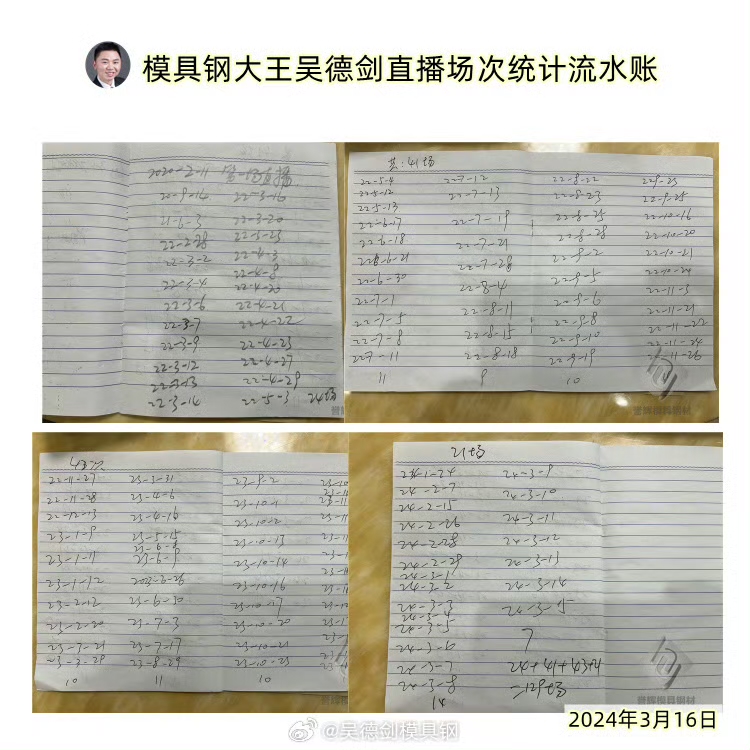 模具钢大王吴德剑直播场次统计流水账
2020-2-11 第一场直播
20-9-14 22-3-16
21-6-3 22-3-20
22-2-28 22-3-23
22-3-2 22-4-3
22-3-4 22-4-8
22-4-20
22-3-6 22-4-21
22-3-7 22-4-22
22-3-9 22-4-23
22-3-12 22-4-27
22-3-13 22-4-29
22-3-14 22-5-3 24场
共:41场
22-5-4 22-7-12 22-8-22 22-9-23
22-5-12 22-7-13 22-8-23 22-9-25
22-5-13
22-6-17 22-7-19 22-8-25 22-10-16
22-6-18 22-7-21 22-8-28 22-10-20
22-6-21 22-7-28 22-9-2 22-10-21
22-6-30 22-8-4 22-9-5 22-10-29
22-7-1 22-9-6 22-11-3
22-7-5 22-8-11 22-9-8 22-11-21
22-7-8 22-8-15 22-9-10 22-11-22
22-11-24
227-11 22-8-18 22-9-19 22-11-26
11 9 10
22-11-27 23-3-31 23-9-2
22-11-28 23-4-6 23-10-1
22-12-13 23-4-16 23-10-2
23-1-9 23-5-15 23-10-13
23-6-9
23-1-11 23-6-9 23-10-14
23-1-12 2023-6-26 23-10-16
23-2-12 23-6-30 23-10-17
23-2-20 23-7-3 23-10-20
23-3-21 23-7-17 23-10-21
23-3-28 23-8-29 23-10-23
10 11 10
21场
24-1-24 24-3-9
24-2-7 24-3-10
24-2-15 24-3-11
24-2-26
24-2-28 24-3-12
24-2-29 24-3-13
24-3-1
24-3-2 24-3-14
24-3-3 24-3-15
24-3-4
24-3-5
24-3-6 7
24-3-7 24+41+43+21
24-3-8 =129场
14
誉辉模具钢材
@吴德剑模具钢
2024年3月16日